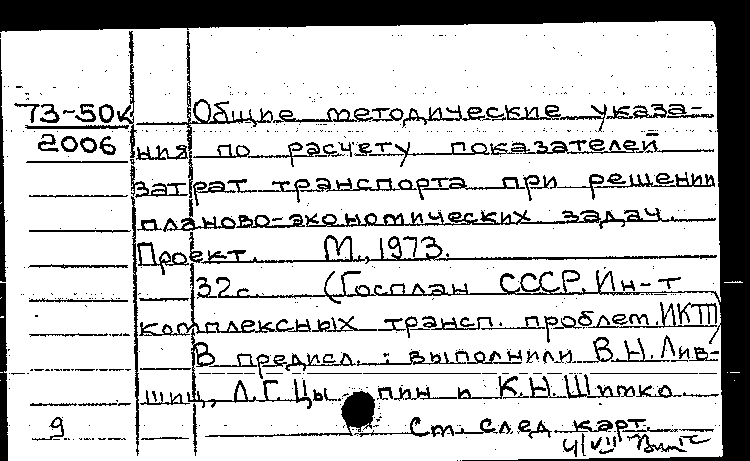 73-50к Общие методические указа-
2006 ния по расчету показателей
затрат транспорта при решении
планово-экономических задач.
Проект. М., 1973.
32с. (Госплан СССР. Ин-т
комплексных трансп. проблем. ИКТП)
В предисл.: выполнили В.Н. Лив-
шиц, Л.Г. Цыпин и К.Н. Шитко.
9 Ст. след. карт.
4/VII